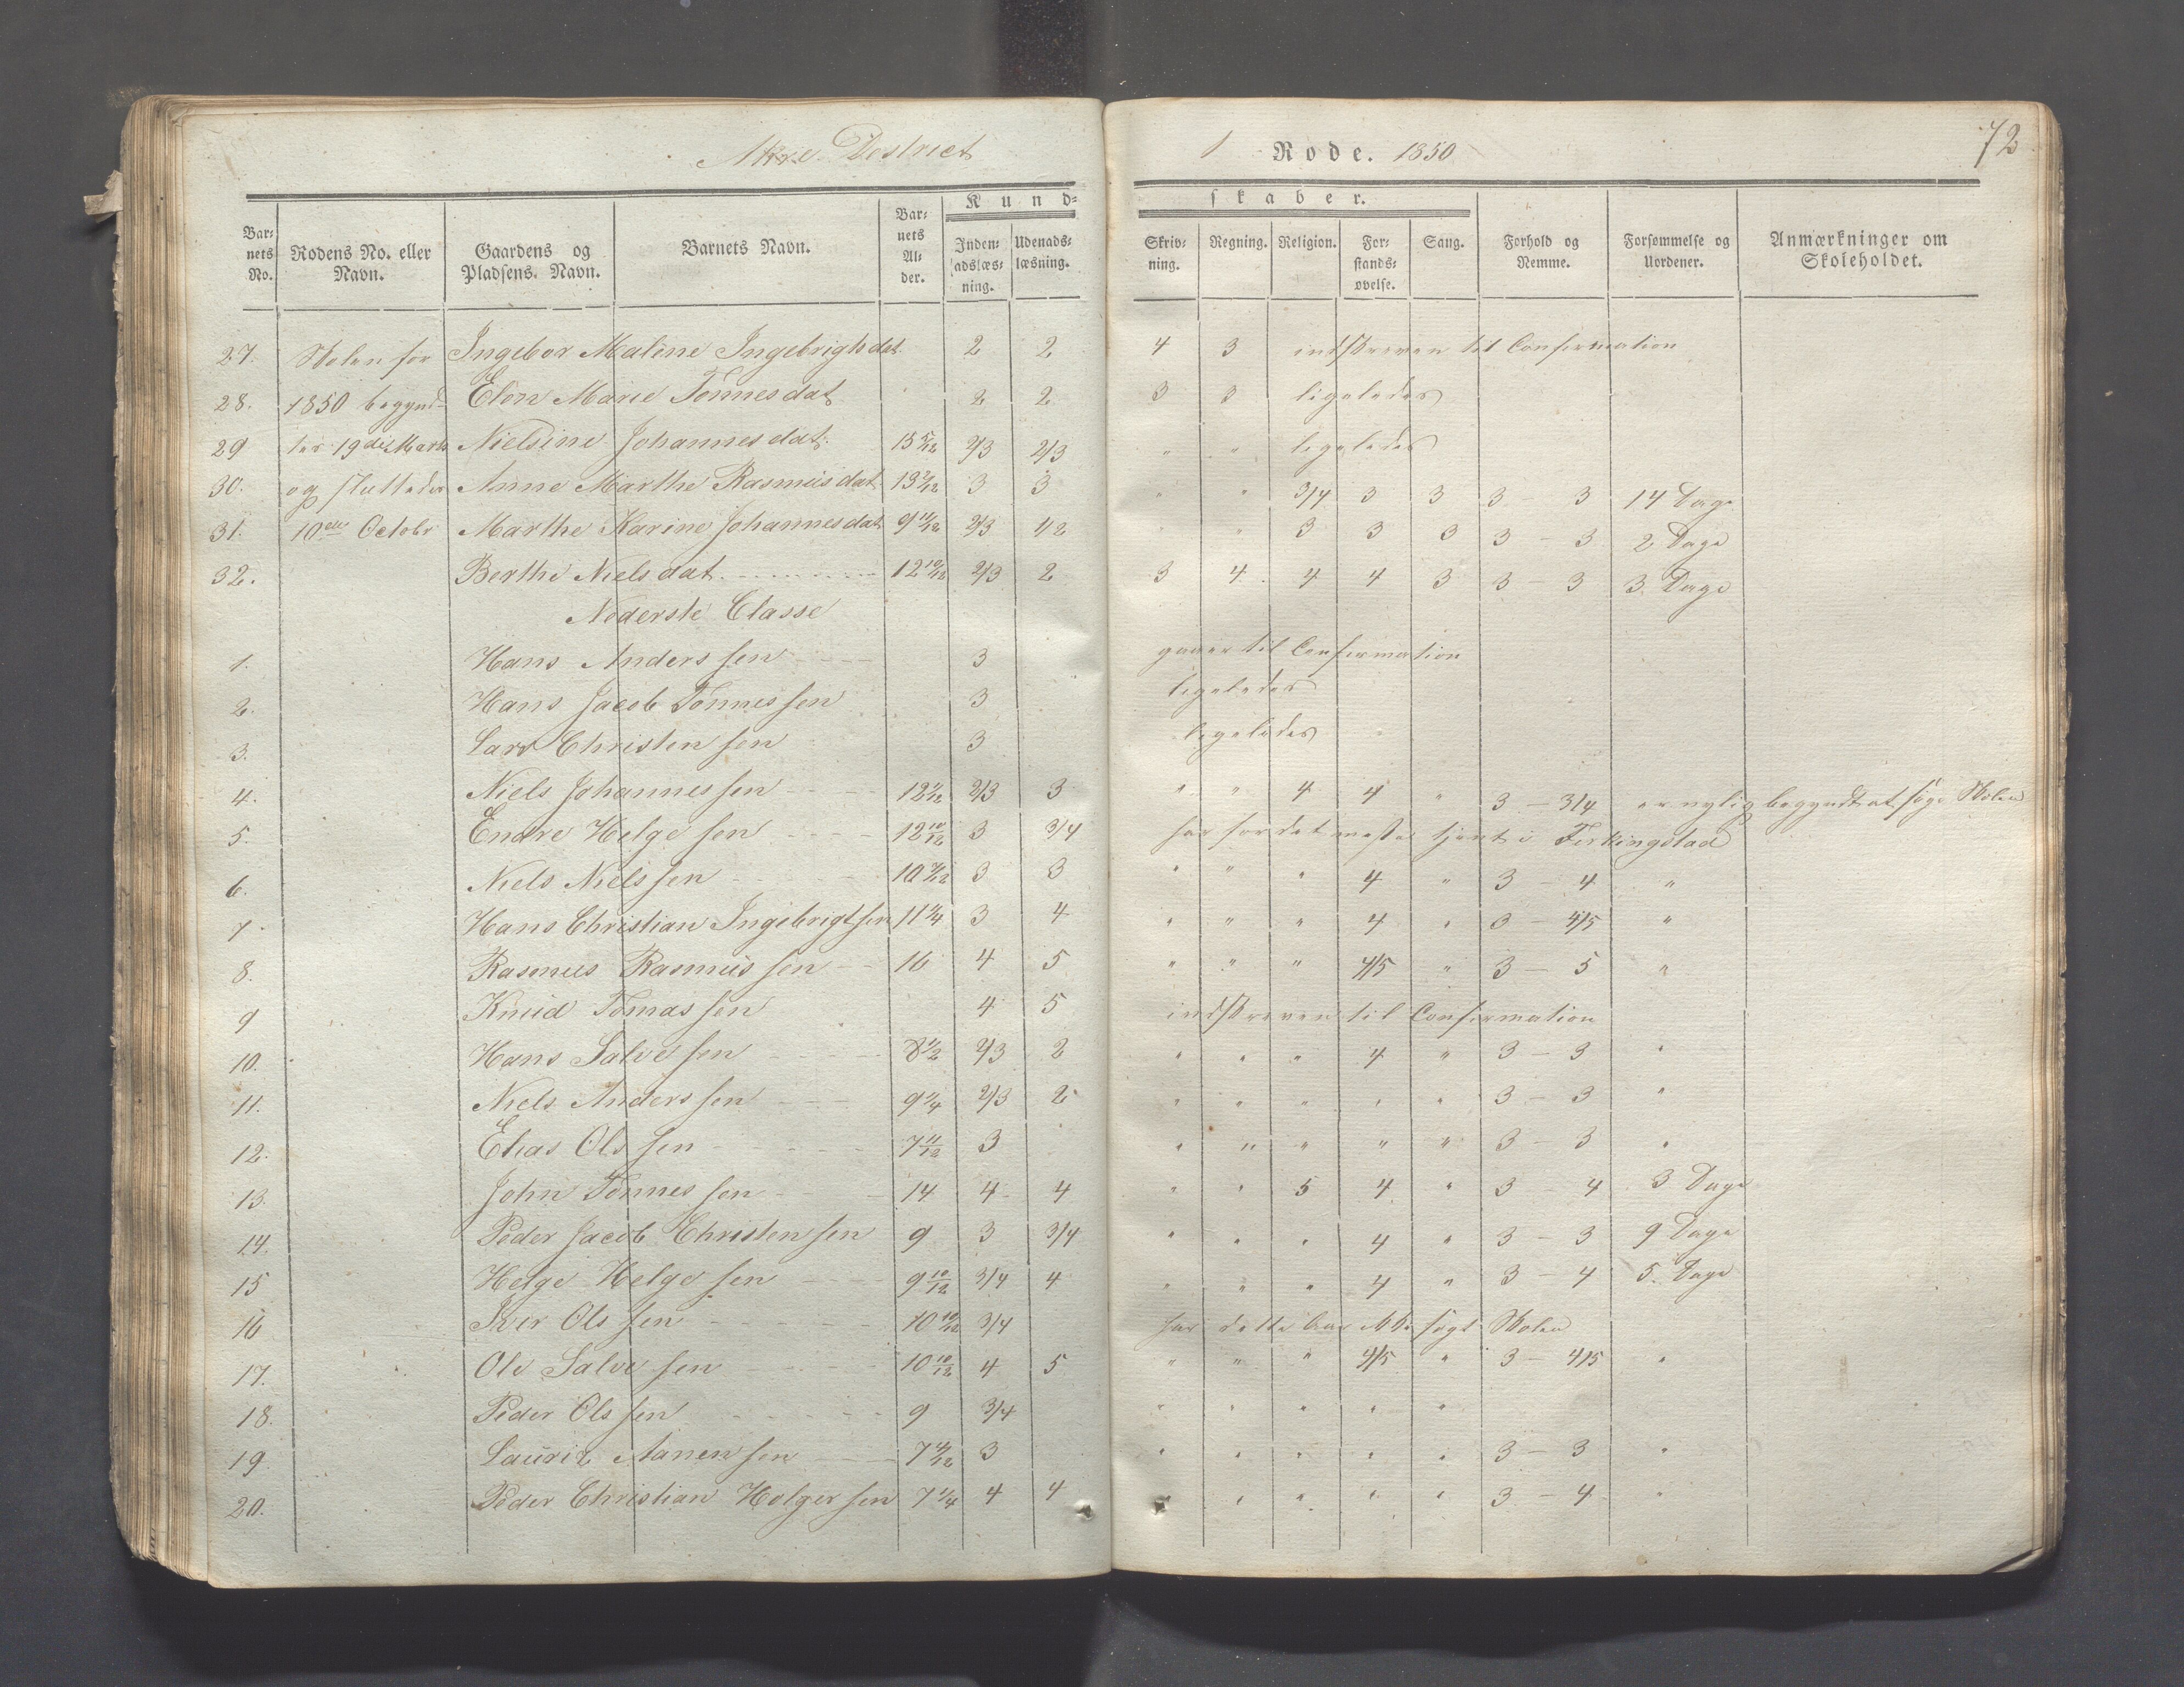 Akre District
1 Rode. 1850
72
Kund=
skaber.
Barnets No. Rodens No. eller Navn. Gaardens og Pladsens Navn. Barnets Navn. Barnets Alder. Indenadslæsning. Udenadslæsning. Skrivning. Regning. Religion. Forstandsøvelse. Sang. Forhold og Nemme. Forsømmelse og Uordener. Anmærkninger om Skoleholdet.
27. Skolen for Ingebor Maline Ingebrigtsdat 2 2 4 3 indskreven til Confirmation
28. 1850 begynd- Elen Marie Tönnesdat 2 2 3 3 ligeledes
29 te 19de Marts Nielsine Johannesdat. 15 5/12 2/3 2/3 " " ligeledes
30. og sluttedes Anne Marthe Rasmusdat 13 2/12 3 3 " " 3/4 3 3 3 - 3 14 Dage
31. 10de Octobr Marthe Karine Johannesdat 9 11/12 2/3 1/2 " " 3 3 3 3 - 3 2 Dage
32. Berthe Nielsdat. 12 10/12 2/3 2 3 4 4 4 3 3 - 3 3 Dage
Nederste Classe
1. Hans Anderssen 3 gaaer til Confirmation
2. Hans Jacob Tönnessen 3 ligeledes
3. Lars Christensen 3 ligeledes
4. Niels Johannessen 12 2/3 3 " " 4 4 " 3 - 3/4 er nylig begyndt at søge Skolen
5. Endre Helgesen 12 10/12 3 3/4 har for det meste tjent i Ferkingstad
6. Niels Nielssen 10 3 3 " " " 4 " 3 - 4 "
7. Hans Christian Ingebrigtsen 11 3 4 " " " 4 " 3 - 4/5 "
8. Rasmus Rasmussen 16 4 5 " " " 4/5 " 3 - 5 "
9 Knud Tomassen 4 5 indskreven til Confirmation
10. Hans Salvesen 8 1/2 2/3 2 " " " 4 " 3 - 3 "
11. Niels Anderssen 9 2/3 2 " " " " " 3 - 3 "
12. Elias Olssen 7 11/12 3 " " " " " 3 - 3 "
13. John Tönnessen 14 4 4 " " 5 4 " 3 - 4 3 Dage
14. Peder Jacob Christensen 9 3 3/4 " " " 4 " 3 - 3 9 Dage
15 Helge Helgesen 9 10/12 3/4 4 " " " 4 " 3 - 4 5. Dage
16 Iver Olssen 10 10/12 3/4 har dette Aar søgt Skolen
17. Ole Salvesen 10 10/12 4 5 " " " 4/5 " 3 - 4/5 "
18. Peder Olssen 9 3/4 " " " " "
19. Lauriz Aanensen 7 3 " " " " " 3 - 3 "
20. Peder Christian Holgersen 7 1/4 4 4 " " " " " 3 - 4 "